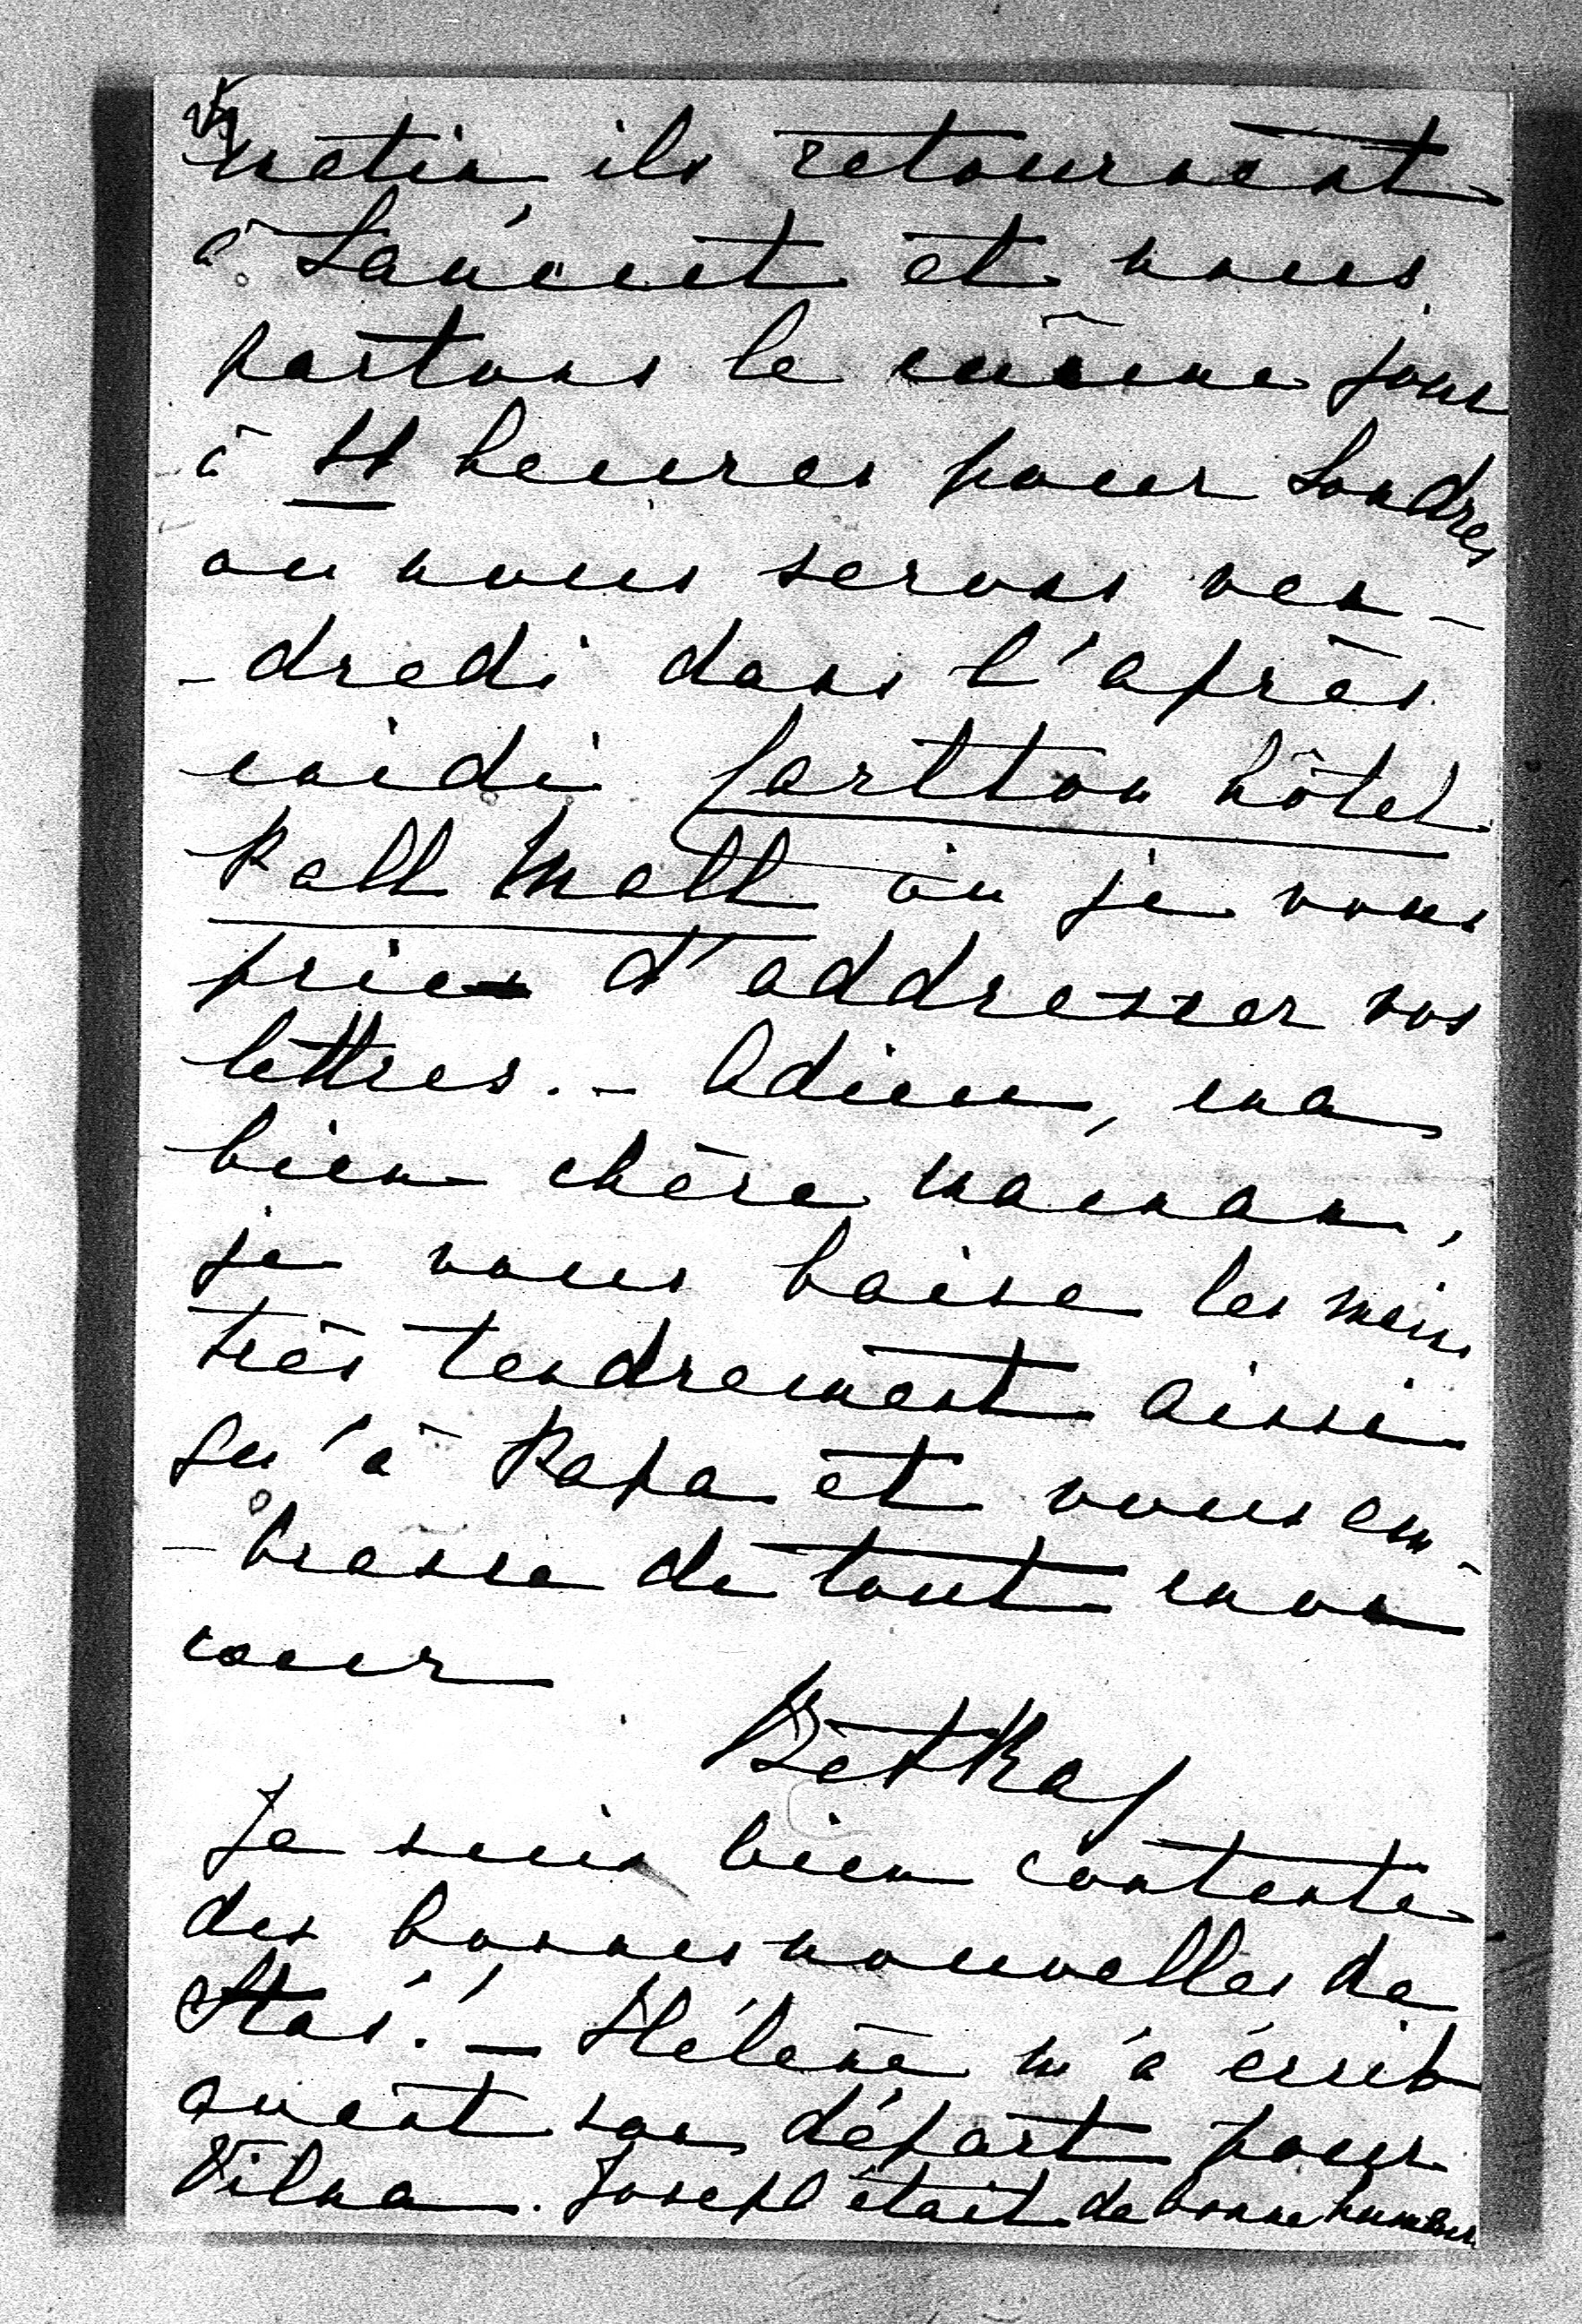 matin ils retournent
à Łańcut et nous
partons le même jour
à 11 heures pour Londres
ou nous serons ven-
-dredi dans l'après
midi Carlton hôtel
Pall Mall où je vous
prie d'addresser vos
lettres. - Adieu, ma
bien chère maman,
je vous baise les mains
très tendrement ainsi
qu'à Papa et vous em-
-brasse de tout mon
coeur
Betka
Je suis bien contente
des bonnes nouvelles de
Staś. - Hélène m'a écrit
avant son départ pour
Vilna. Joseph était de bonne humeur